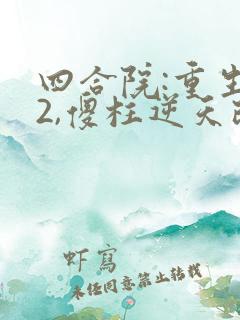 四合院:重生
2,傻柱逆天改
虾写
未经同意禁止转载